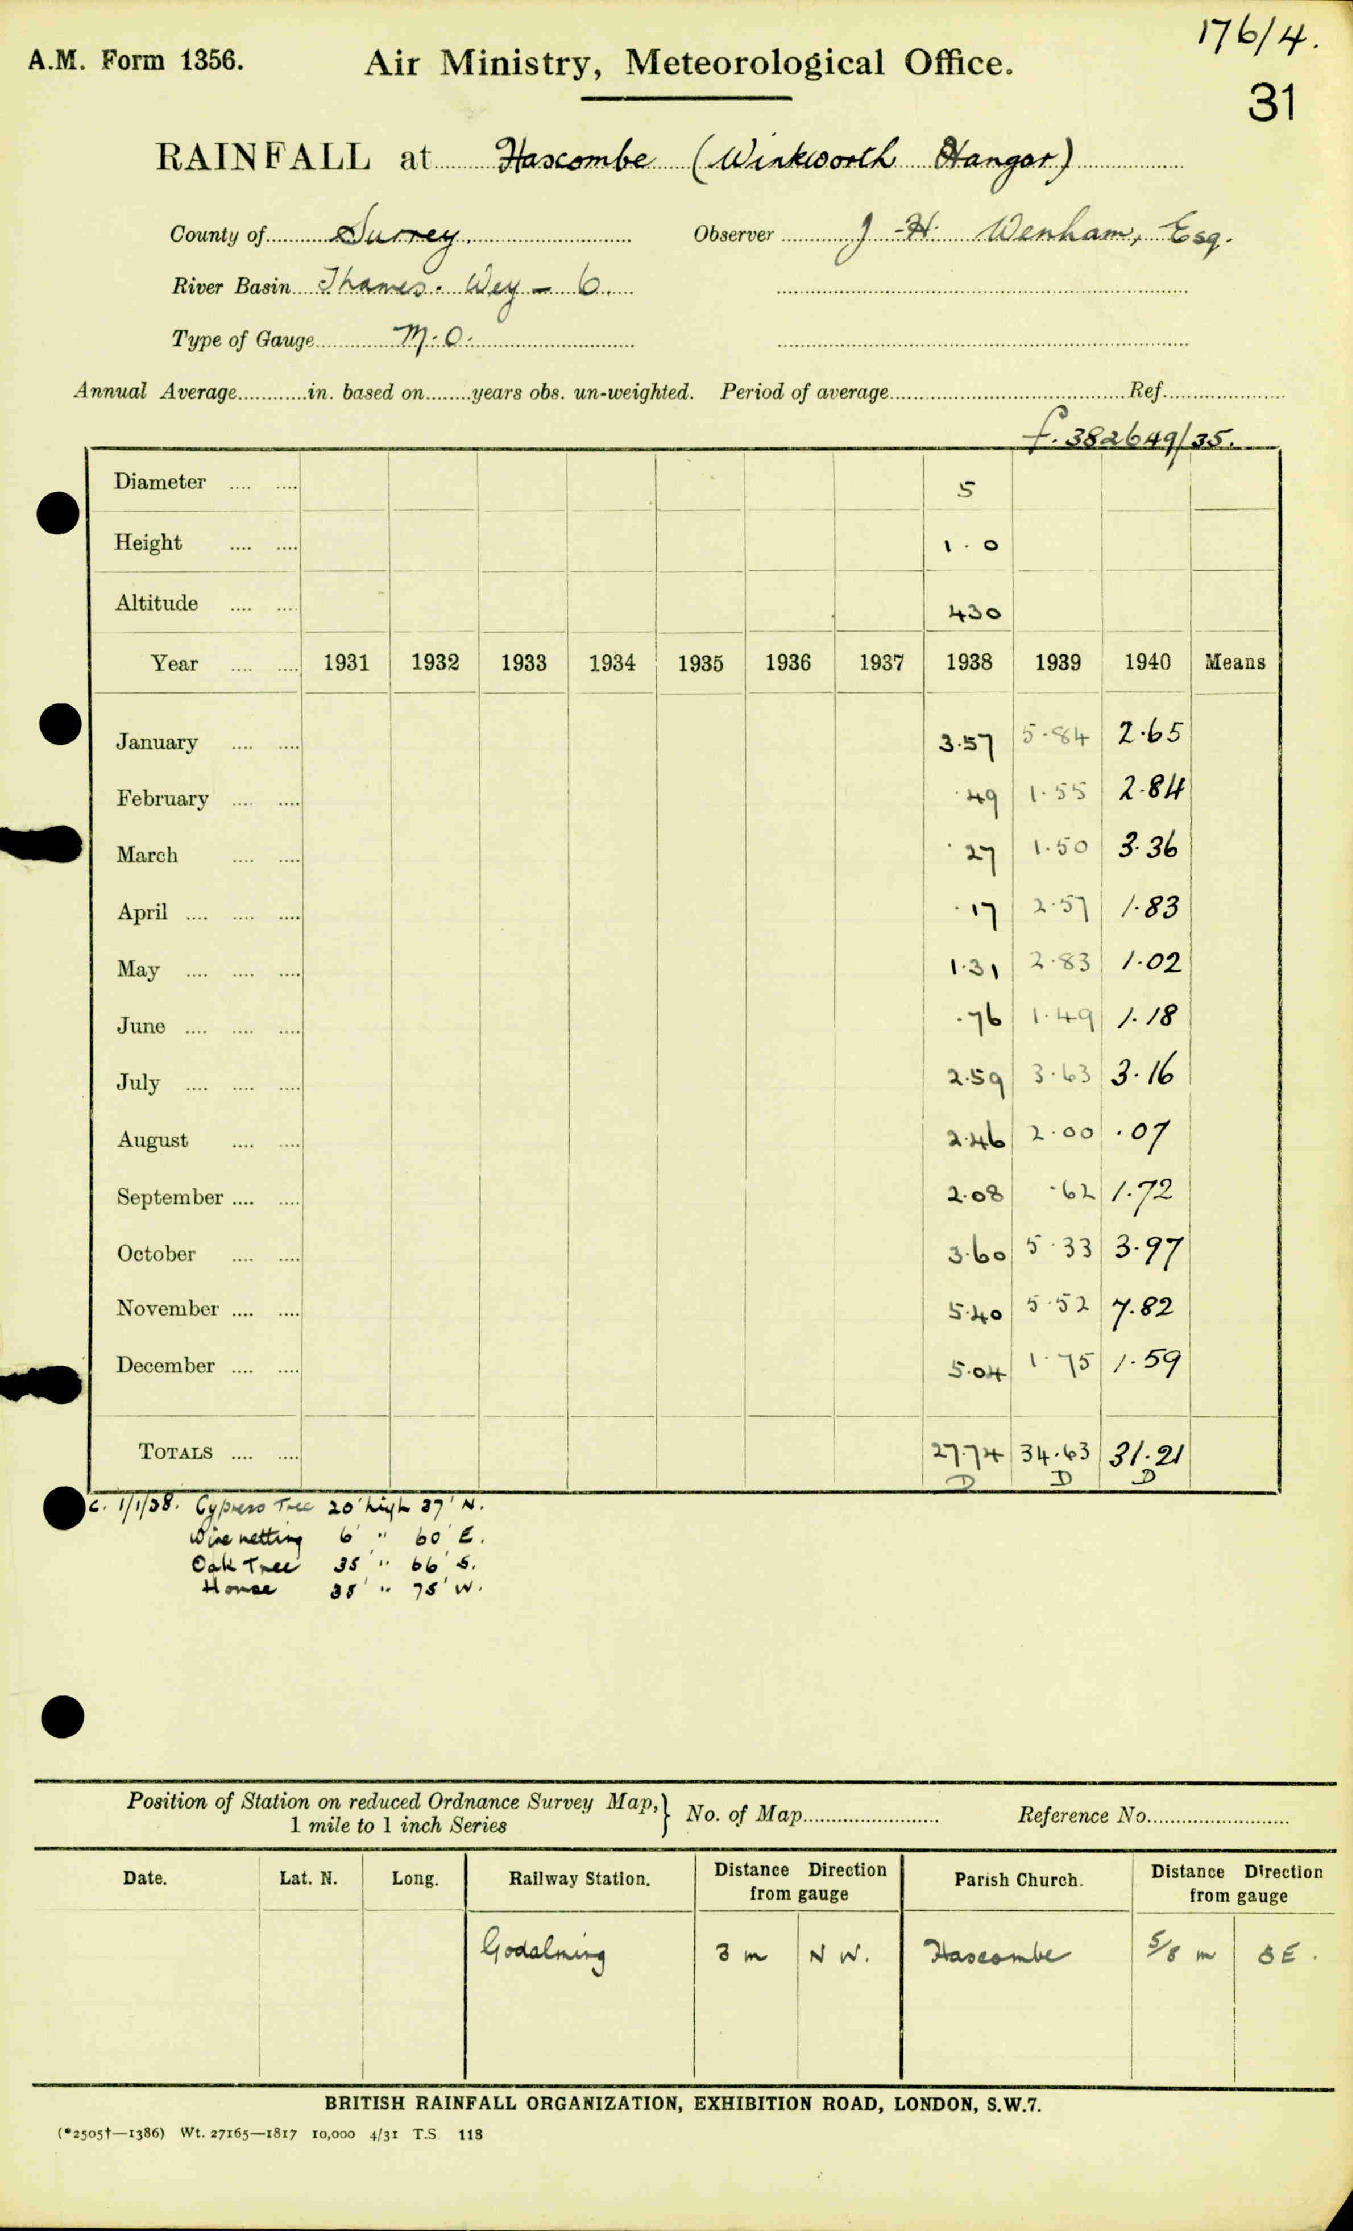 176/4.
A.M. Form 1356. Air Ministry, Meteorological Office.
31
RAINFALL at Hascombe (Winkworth Hangar)
County of Surrey. Observer J. H. Wenham, Esq.
River Basin Thames - Wey - 6.
Type of Gauge M.O.
Annual Average............in. based on........years obs. un-weighted. Period of average........................................Ref.....................
f. 382649/35.
Diameter .... .... 5
Height .... .... 1.0
Altitude .... .... 430
Year .... .... 1931 1932 1933 1934 1935 1936 1937 1938 1939 1940 Means
January .... .... 3.57 5.84 2.65
February .... .... .49 1.55 2.84
March .... .... .27 1.50 3.36
April .... .... .... .17 2.57 1.83
May .... .... .... 1.31 2.83 1.02
June .... .... .... .76 1.49 1.18
July .... .... .... 2.59 3.63 3.16
August .... .... 2.46 2.00 .07
September .... .... 2.08 .62 1.72
October .... .... 3.60 5.33 3.97
November .... .... 5.40 5.52 7.82
December .... .... 5.04 1.75 1.59
TOTALS .... .... 27.74 34.63 31.21
D D D
c. 1/1/38. Cypress Tree 20' high 37' N.
Wire netting 6' " 60' E.
Oak Tree 35' " 66' S.
House 35' " 75' W.
Position of Station on reduced Ordnance Survey Map,} No. of Map........................ Reference No.........................
1 mile to 1 inch Series
Date. Lat. N. Long. Railway Station. Distance Direction from gauge Parish Church. Distance Direction from gauge
Godalming 3 m N W. Hascombe 5/8 m S E.
BRITISH RAINFALL ORGANIZATION, EXHIBITION ROAD, LONDON, S.W.7.
(*2505†—1386) Wt. 27165—1817 10,000 4/31 T.S. 118